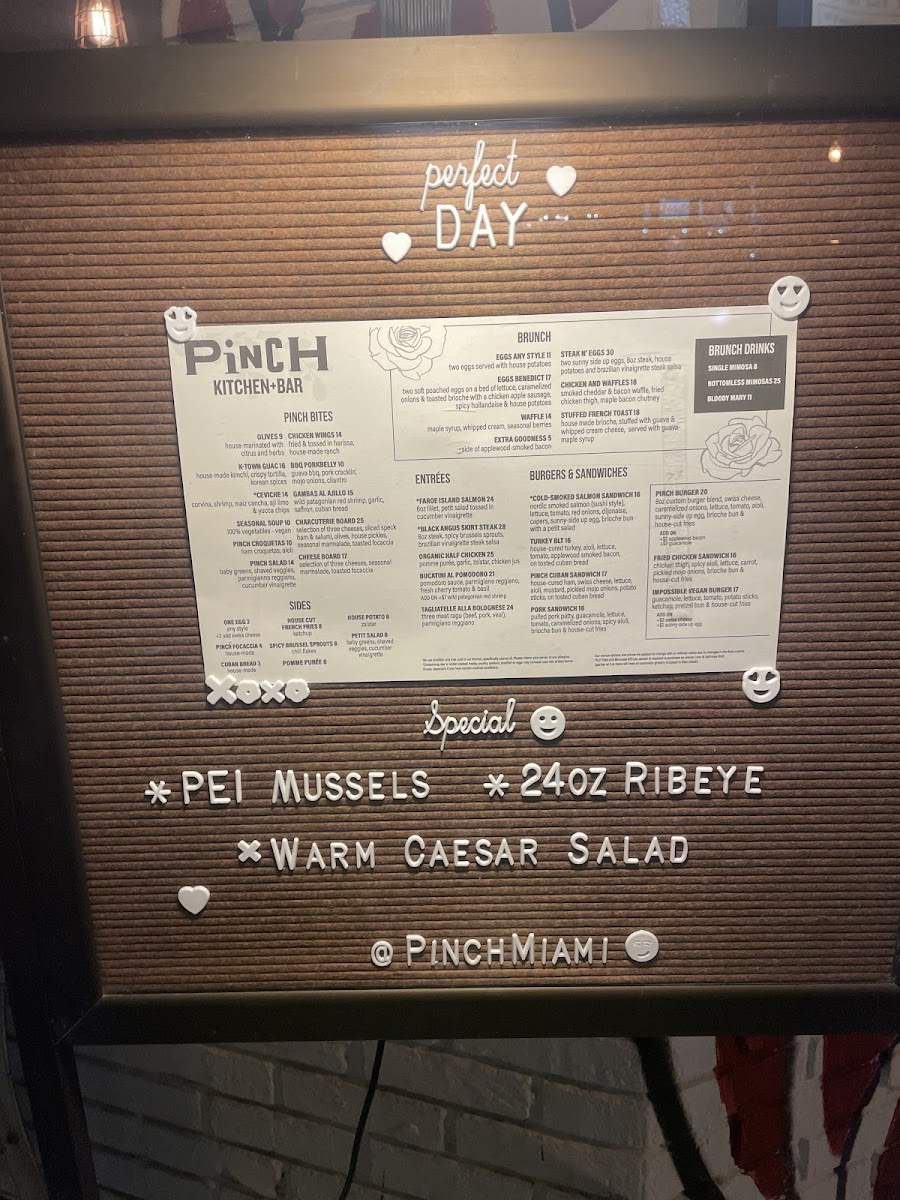 perfect
DAY
PINCH
KITCHEN+BAR
PINCH BITES
OLIVES 9
house-marinated with
citrus and herbs
K-TOWN GUAC 16
house-made kimchi, crispy tortilla,
korean spices
*CEVICHE 14
corvina, shrimp, maiz cancha, aji limo
& yucca chips
SEASONAL SOUP 10
100% vegetables - vegan
PINCH CROQUETAS 10
ham croquetas, aioli
PINCH SALAD 14
baby greens, shaved veggies,
parmigiano reggiano,
cucumber vinaigrette
CHICKEN WINGS 14
fried & tossed in harissa,
house-made ranch
BBQ PORKBELLY 10
guava bbq, pork cracklin',
mojo onions, cilantro
GAMBAS AL AJILLO 15
wild patagonian red shrimp, garlic,
saffron, cuban bread
CHARCUTERIE BOARD 25
selection of three cheeses, sliced speck
ham & salumi, olives, house pickles,
seasonal marmalade, toasted focaccia
CHEESE BOARD 17
selection of three cheeses, seasonal
marmalade, toasted focaccia
SIDES
ONE EGG 3
any style
+2 add swiss cheese
PINCH FOCACCIA 4
house-made
CUBAN BREAD 3
house made
HOUSE CUT
FRENCH FRIES 8
ketchup
SPICY BRUSSEL SPROUTS 8
chili flakes
POMME PURÉE 8
HOUSE POTATO 8
za'atar
PETIT SALAD 8
baby greens, shaved
veggies, cucumber
vinaigrette
BRUNCH
EGGS ANY STYLE 11
two eggs served with house potatoes
EGGS BENEDICT 17
two soft poached eggs on a bed of lettuce, caramelized
onions & toasted brioche with a chicken apple sausage,
spicy hollandaise & house potatoes
WAFFLE 14
maple syrup, whipped cream, seasonal berries
EXTRA GOODNESS 5
side of applewood-smoked bacon
STEAK N' EGGS 30
two sunny side up eggs, 8oz steak, house
potatoes and brazilian vinaigrette steak salsa
CHICKEN AND WAFFLES 18
smoked cheddar & bacon waffle, fried
chicken thigh, maple bacon chutney
STUFFED FRENCH TOAST 18
house made brioche, stuffed with guava &
whipped cream cheese, served with guava
maple syrup
BRUNCH DRINKS
SINGLE MIMOSA 8
BOTTOMLESS MIMOSAS 25
BLOODY MARY 11
ENTRÉES
*FAROE ISLAND SALMON 24
6oz fillet, petit salad tossed in
cucumber vinaigrette
*BLACK ANGUS SKIRT STEAK 28
8oz steak, spicy brussels sprouts,
brazilian vinaigrette steak salsa
ORGANIC HALF CHICKEN 25
pomme purée, garlic, za'atar, chicken jus
BUCATINI AL POMODORO 21
pomodoro sauce, parmigiano reggiano,
fresh cherry tomato & basil
ADD ON +$7 wild patagonian red shrimp
TAGLIATELLE ALLA BOLOGNESE 24
three meat ragu (beef, pork, veal),
parmigiano reggiano
BURGERS & SANDWICHES
*COLD-SMOKED SALMON SANDWICH 16
nordic smoked salmon (sushi style),
lettuce, tomato, red onions, dijonaise,
capers, sunny-side up egg, brioche bun
with a petit salad
TURKEY BLT 16
house-cured turkey, aioli, lettuce,
tomato, applewood smoked bacon,
on tosted cuban bread
PINCH CUBAN SANDWICH 17
house-cured ham, swiss cheese, lettuce,
aioli, mustard, pickled mojo onions, potato
sticks, on tosted cuban bread
PORK SANDWICH 16
pulled pork patty, guacamole, lettuce,
tomato, caramelized onions, spicy aioli,
brioche bun & house-cut fries
PINCH BURGER 20
8oz custom burger blend, swiss cheese,
caramelized onions, lettuce, tomato, aioli,
sunny-side up egg, brioche bun &
house-cut fries
ADD ON
+$2 applewood bacon
+$3 guacamole
FRIED CHICKEN SANDWICH 16
chicken thigh, spicy aioli, lettuce, carrot,
pickled mojo onions, brioche bun &
house-cut fries
IMPOSSIBLE VEGAN BURGER 17
guacamole, lettuce, tomato, potato sticks,
ketchup, pretzel bun & house-cut fries
ADD ON
+$2 swiss cheese
+$2 sunny-side up egg
XOXO
Special
*PEI MUSSELS *24OZ RIBEYE
×WARM CAESAR SALAD
@PINCHMIAMI